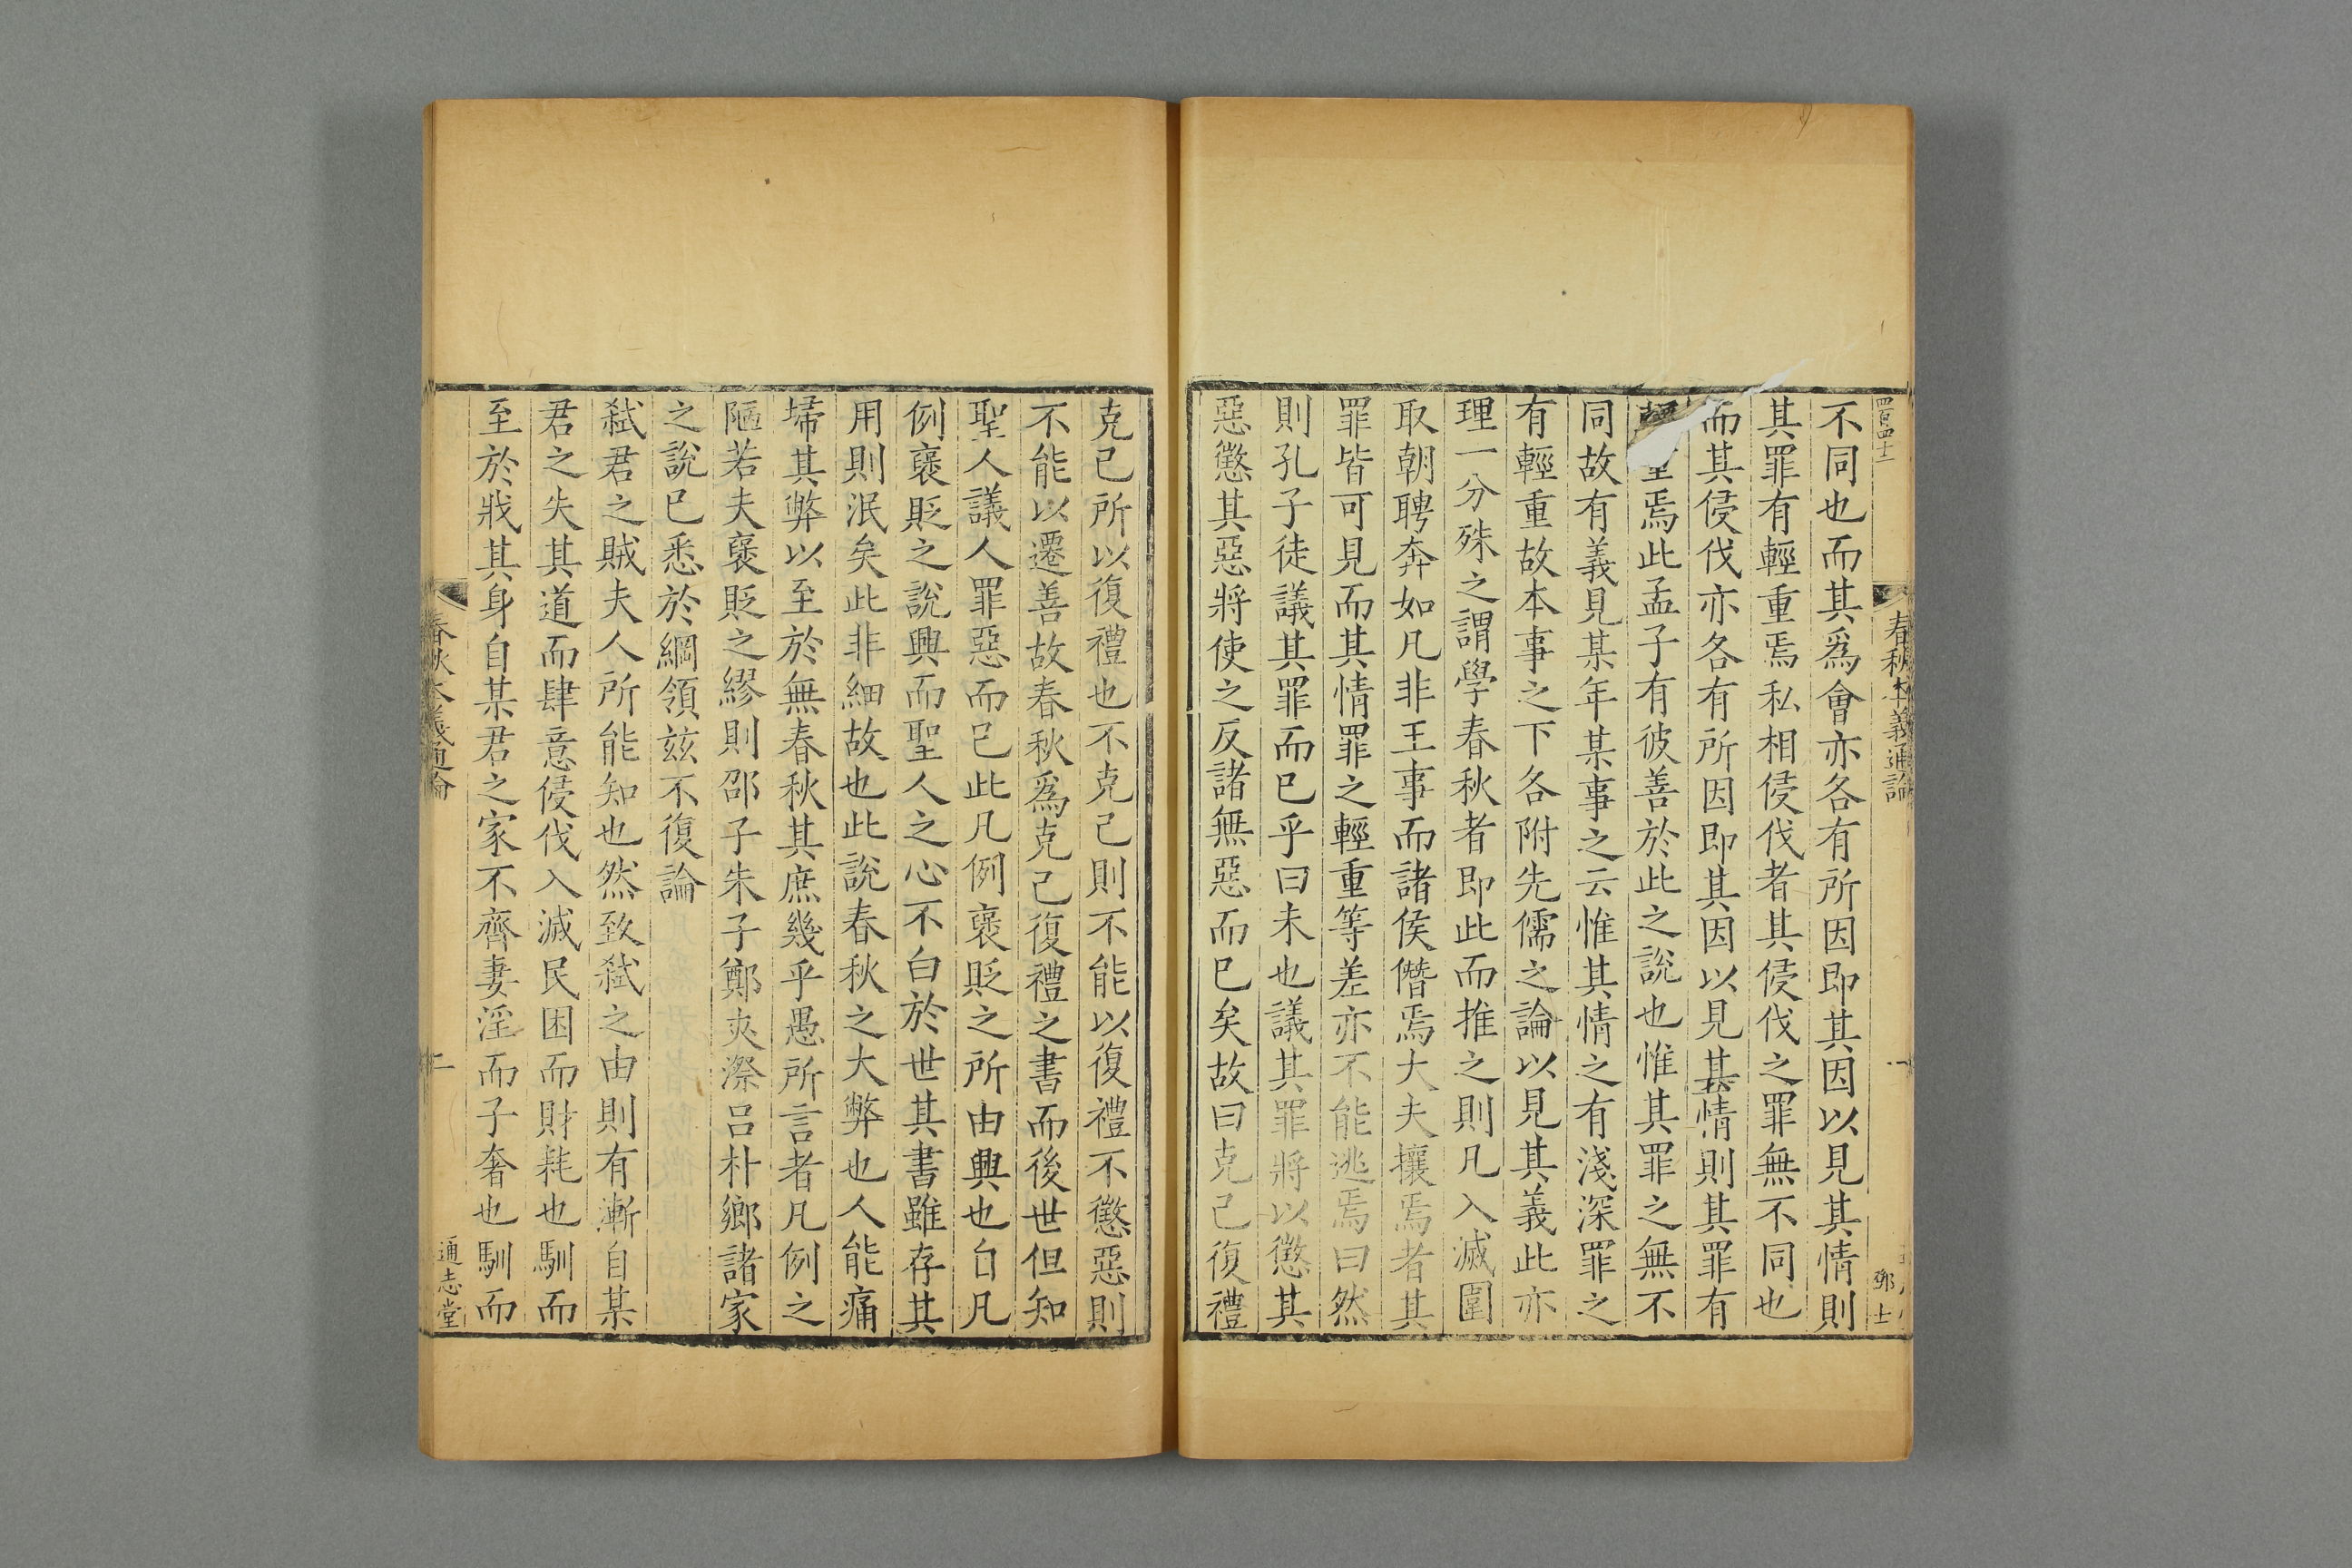 四百四十一
春秋本義通論
一
鄧士
不同也而其爲會亦各有所因即其因以見其情則
其罪有輕重焉私相侵伐者其侵伐之罪無不同也
而其侵伐亦各有所因即其因以見其情則其罪有
重焉此孟子有彼善於此之說也惟其罪之無不
同故有義見某年某事之云惟其情之有淺深罪之
有輕重故本事之下各附先儒之論以見其義此亦
理一分殊之謂學春秋者即此而推之則凡入滅圍
取朝聘奔如凡非王事而諸侯僭焉大夫攘焉者其
罪皆可見而其情罪之輕重等差亦不能逃焉曰然
則孔子徒議其罪而已乎曰未也議其罪將以懲其
惡懲其惡將使之反諸無惡而已矣故曰克己復禮
克己所以復禮也不克己則不能以復禮不懲惡則
不能以遷善故春秋爲克己復禮之書而後世但知
聖人議人罪惡而已此凡例襃貶之所由興也自凡
例襃貶之說興而聖人之心不白於世其書雖存其
用則泯矣此非細故也此說春秋之大弊也人能痛
埽其弊以至於無春秋其庶幾乎愚所言者凡例之
陋若夫襃貶之繆則邵子朱子鄭夾漈呂朴鄉諸家
之說已悉於綱領茲不復論
弒君之賊夫人所能知也然致弒之由則有漸自某
君之失其道而肆意侵伐入滅民困而財耗也馴而
至於戕其身自某君之家不齊妻淫而子奢也馴而
春秋本義通論
二
通志堂